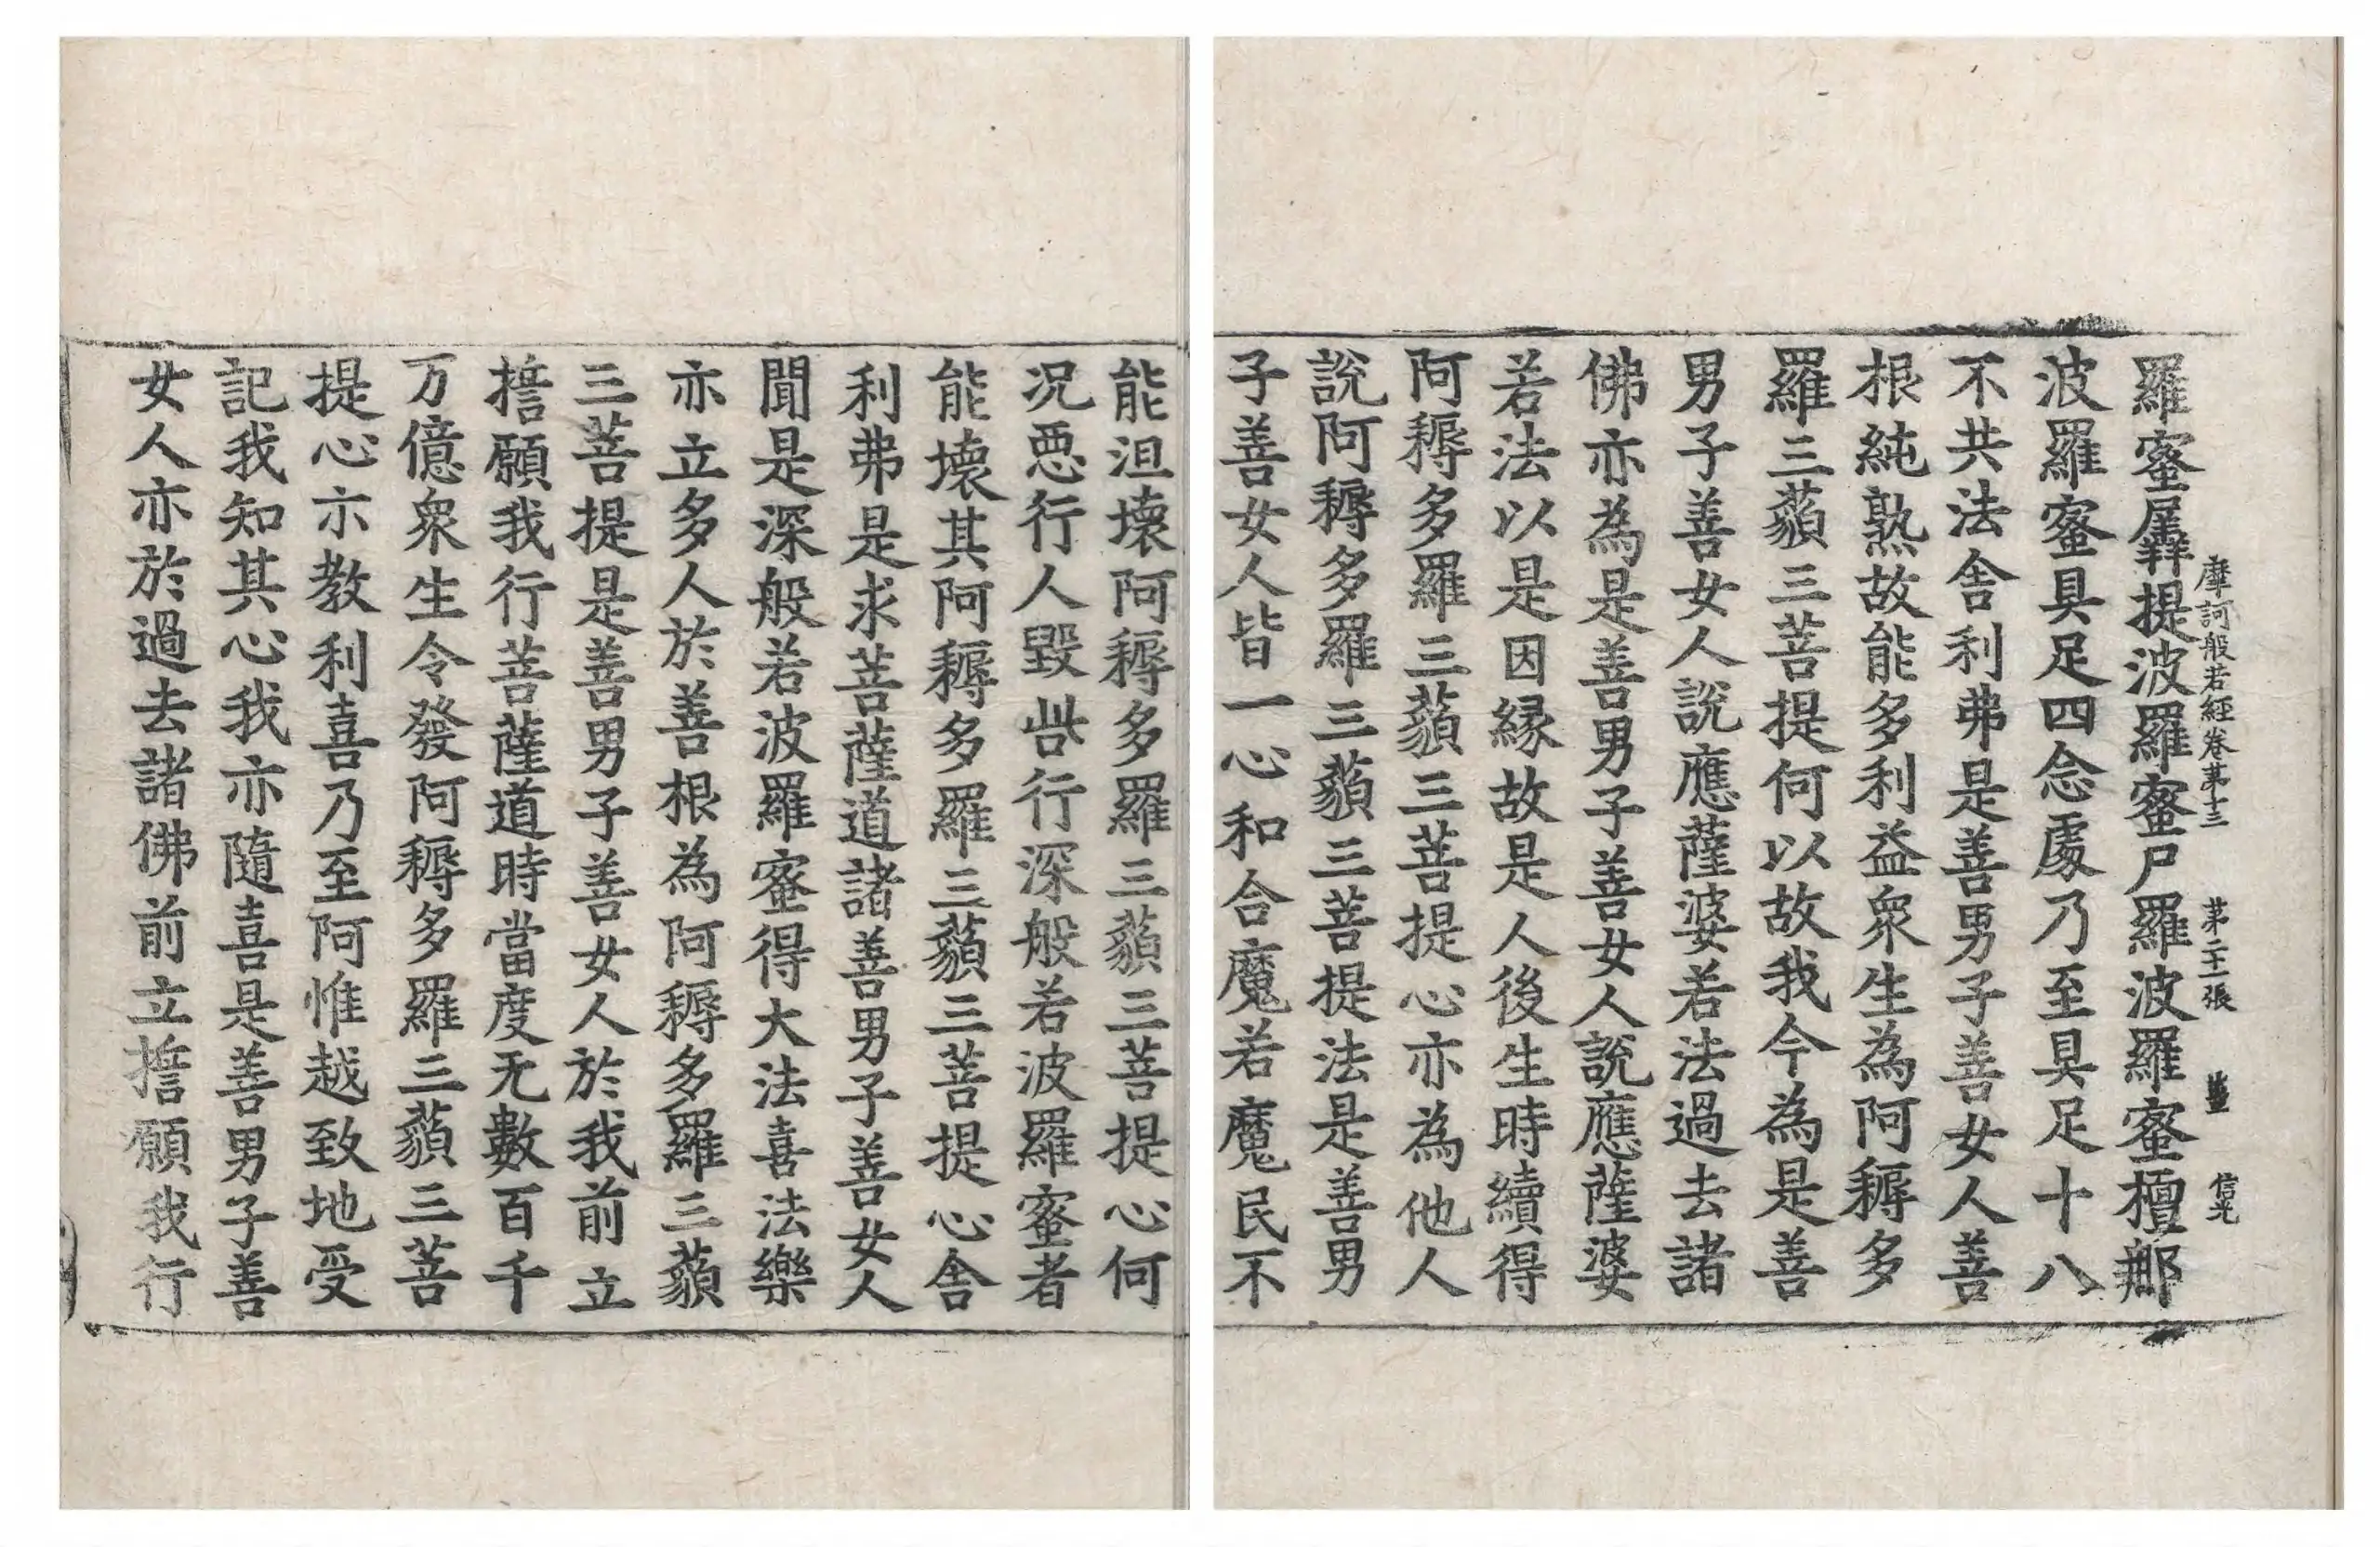 摩訶般若經卷第十三　第二十一張　薑　信光
羅蜜羼提波羅蜜尸羅波羅蜜檀那
波羅蜜具足四念處乃至具足十八
不共法舍利弗是善男子善女人善
根純熟故能多利益衆生為阿耨多
羅三藐三菩提何以故我今為是善
男子善女人說應薩婆若法過去諸
佛亦為是善男子善女人說應薩婆
若法以是因縁故是人後生時續得
阿耨多羅三藐三菩提心亦為他人
說阿耨多羅三藐三菩提法是善男
子善女人皆一心和合魔若魔民不
能沮壞阿耨多羅三藐三菩提心何
况惡行人毀呰行深般若波羅蜜者
能壞其阿耨多羅三藐三菩提心舍
利弗是求菩薩道諸善男子善女人
聞是深般若波羅蜜得大法喜法樂
亦立多人於善根為阿耨多羅三藐
三菩提是善男子善女人於我前立
誓願我行菩薩道時當度无數百千
万億衆生令發阿耨多羅三藐三菩
提心示教利喜乃至阿惟越致地受
記我知其心我亦隨喜是善男子善
女人亦於過去諸佛前立誓願我行